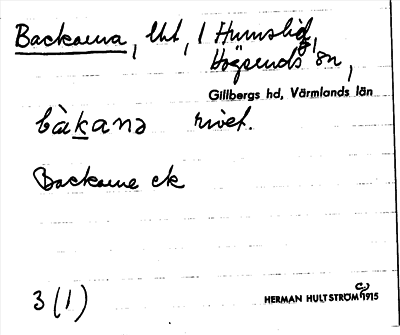 Backarna, lht, 1 Humslid, gl,
Högseruds sn,
Gillbergs hd, Värmlands län
bàkanə rivet.
Backarne ek
3 (1)
HERMAN HULTSTRÖM 1915